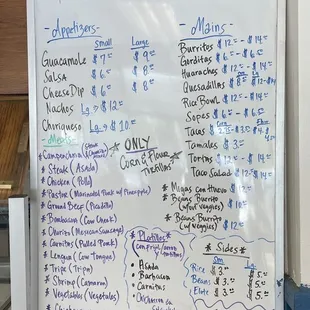 -Appetizers-
Small Large
Guacamole $7 $9
Salsa $6 $8
Cheese Dip $6 $8
Nachos La → $12
Chiriqueso La → $10
Meats
*Campechana
*Steak (Asada)
*Chicken (Pollo)
*Pastor (Marinated Pork w/ Pineapple)
*Ground Beef (Picadillo)
*Barbacoa (Cow Cheek)
*Chorizo (Mexican Sausage)
*Carnitas (Pulled Pork)
*Lengua (Cow Tongue)
*Tripe (Tripa)
*Shrimp (Camaron)
*Vegetables (Vegetales)
*ONLY
Corn & Flour
Tortillas
-Mains-
Burritos $12 - $14
Gorditas $6 - $6
Huaraches $12 - $14
Quesadillas
Rice Bowl $12 - $14
Sopes $6 - $6
Tacos
Tamales $3
Tortas $12 - $14
Taco Salad $12 - $14
*Migas con Huevo $12
*Beans Burrito
(w/out veggies) $10
*Beans Burrito
(w/ veggies) $12
*Platillos*
• Asada
• Barbacoa
• Carnitas
*Sides*
Sm La
Rice $3 $5
Beans $3 $5
Elote $3 $5